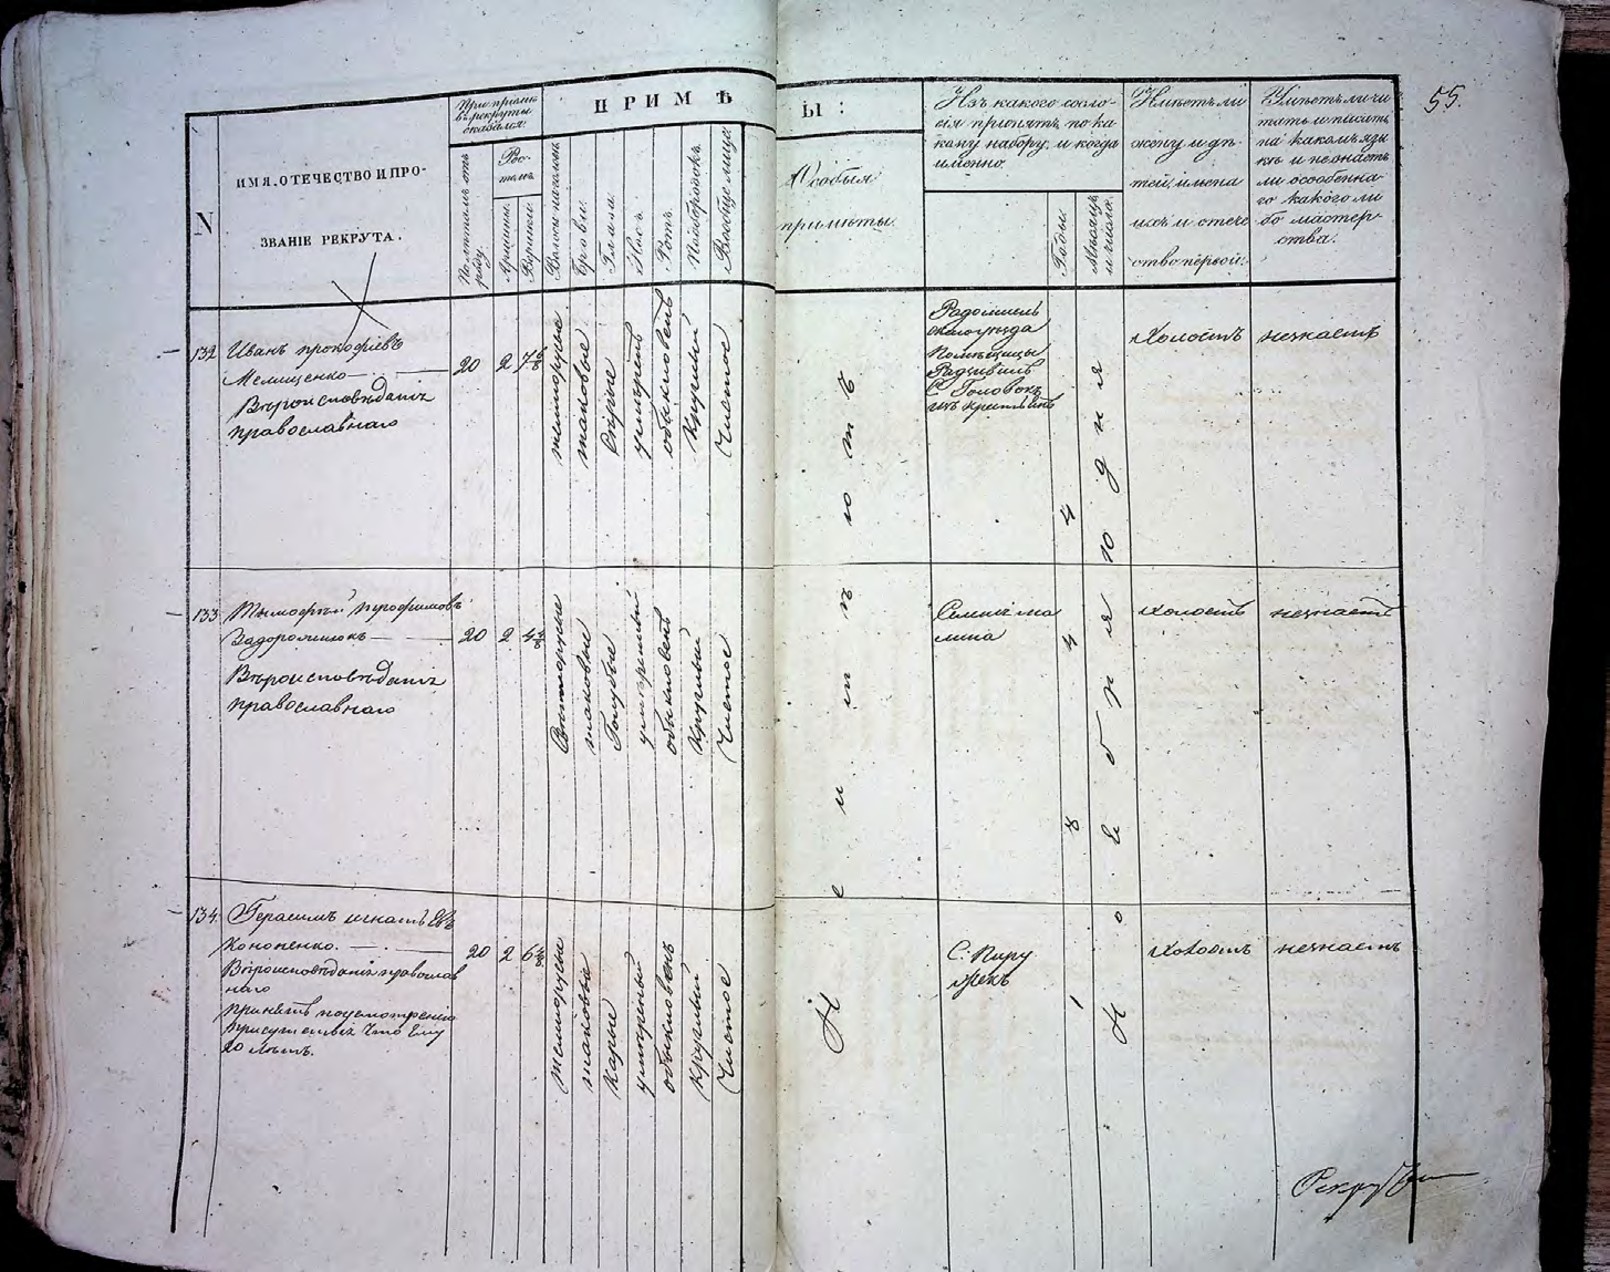 55.
N
ИМЯ, ОТЕЧЕСТВО И ПРО-
ЗВАНІЕ РЕКРУТА.
При пріемѣ
въ рекруты
оказался:
По лѣтамъ отъ
роду.
Рос-
томъ.
Аршины.
Вершки.
ПРИМѢ
ТЫ:
Волосы на головѣ.
Брови.
Глаза.
Носъ.
Ротъ.
Подбородокъ.
Вообще лице.
Особыя
примѣты.
Изъ какого сосло-
вія принятъ, по ка-
кому набору, и когда
именно.
Годы.
Мѣсяцъ
и число.
Имѣетъ ли
жену и дѣ-
тей, имена
ихъ и отече
ство первой.
Умѣетъ ли чи
тать и писать
на какомъ язы
кѣ и не знаетъ
ли особенна-
го какого ли
бо мастер-
ства.
132 Иванъ прокофіевъ
Мелищенко
Вѣроисповѣданія
православнаго
20 2 7
темнорусые
таковые
Сѣрые
умѣренъ
обыкновенъ
Круглый
Чистое
Радомысль
скаго уѣзда
Помѣщицы
Радзивилъ
С Головокъ
изъ крестьянъ
Холостъ
незнаетъ
133 Тимофѣй трофимовъ
Задорожнюкъ
Вѣроисповѣданія
православнаго
20 2 4
Свѣтлорусые
таковые
Голубые
умѣренный
обыкновенъ
Круглый
Чистое
лина
холостъ
незнаетъ
134. Герасимъ игнатьевъ
Кононенко.
Вѣроисповѣданія православ
наго
принятъ по усмотренію
присутствія что ему
20 лѣтъ.
20 2 6
темнорусы
таковые
Карые
умѣренный
обыкновенъ
круглый
Чистое
С: Пиру
жекъ
Холостъ
незнаетъ
Не имѣютъ
1844
Ноября 10 дня